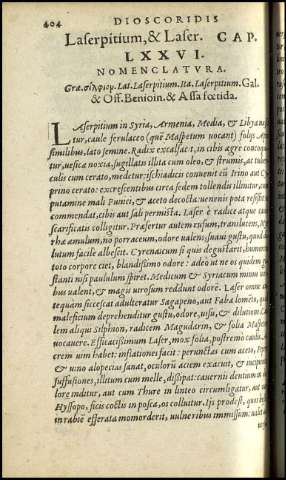 404 DIOSCORIDIS
Laserpitium, & Laser. CAP.
LXXVI.
NOMENCLATVRA.
Græ. σίλφιον. Lat. Laserpitium. Ita. Laserpitium. Gal.
& Off. Benioin. & Assa fœtida.
LAserpitium in Syria, Armenia, Media, & Libya nasci
tur, caule ferulaceo (quē Maspetum uocant) folijs Apio
similibus, lato semine. Radix excalfacit, in cibis agre concoqui
tur, uesicæ noxia, sugillatis illita cum oleo, & strumis, ac tuber
culis cum cerato, medetur: ischiadicis conuenit cū Irino aut Cy
prino cerato: excrescentibus circa sedem tollendis illinitur, cum
putamine mali Punici, & aceto decocta: uenenis pota resistit:
commendat, cibis aut sali permista. Laser è radice atque caule
scarificatis colligitur. Præfertur autem rufum, translucens, Myr
rhæ æmulum, no porraceum, odore ualens, suaui gustu, quod di
lutum facilè albescit. Cyrenaicum si quis degustauerit, humorem
toto corpore ciet, blandissimo odore: adeò ut ne os quidem gu
stanti nisi paululum spiret. Medicum & Syriacum minus uiri
bus ualent, & magis uirosum reddunt odorē. Laser omne an
tequam siccescat adulteratur Sagapeno, aut Faba lomēto, quod
maleficium deprehenditur gustu, odore, uisu, & dilutum. Cau
lem aliqui Silphion, radicem Magudarim, & folia Maspeta
uocauere. Efficacissimum Laser, mox folia, postremò caulis.
crem uim habet: inflationes facit: perunctus cum aceto, Pipere
& uino alopecias sanat, oculorū aciem exacuit, &
suffusiones, illitum cum melle, dissipat: cauernis dentum
lore inditur, aut cum Thure in linteo circumligatur, aut cum
Hyssopo, ficis coctis in posca, os collutur. Ijs prodest, quos
in rabiē efferata momorderit, uulneribus immissum: